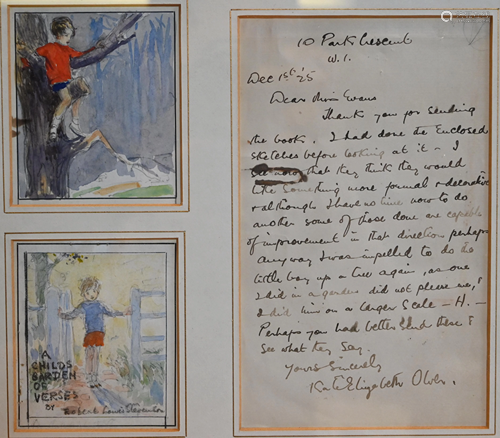 A
CHILDS
GARDEN
OF
VERSES
BY
Robert Louis Stevenson
10 Park Crescent
W.1.
Dec 1st '25
Dear Miss Evans
Thank you for sending
the book. I had done the enclosed
sketches before looking at it – I
see now that they think they would
like something more formal & decorative
& although I have no time now to do
another some of those done are capable
of improvement in that direction perhaps
Anyway I was impelled to do the
little boy up a tree again, as one
I did in a garden did not please me,
I did him on a larger scale – H. –
Perhaps you had better send these &
see what they say.
Yours sincerely
Kate Elizabeth Olver.